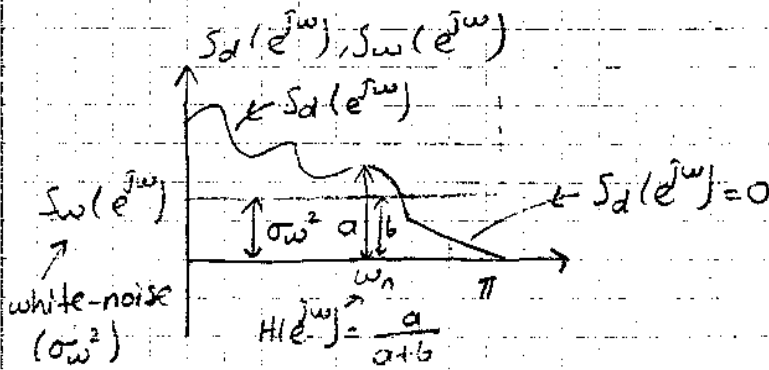 S_d(e^{jω}), S_w(e^{jω})
S_d(e^{jω})
S_w(e^{jω})
σ_w²
a
b
S_d(e^{jω})=0
ω_n
π
white-noise
(σ_w²)
H(e^{jω})= a/(a+b)